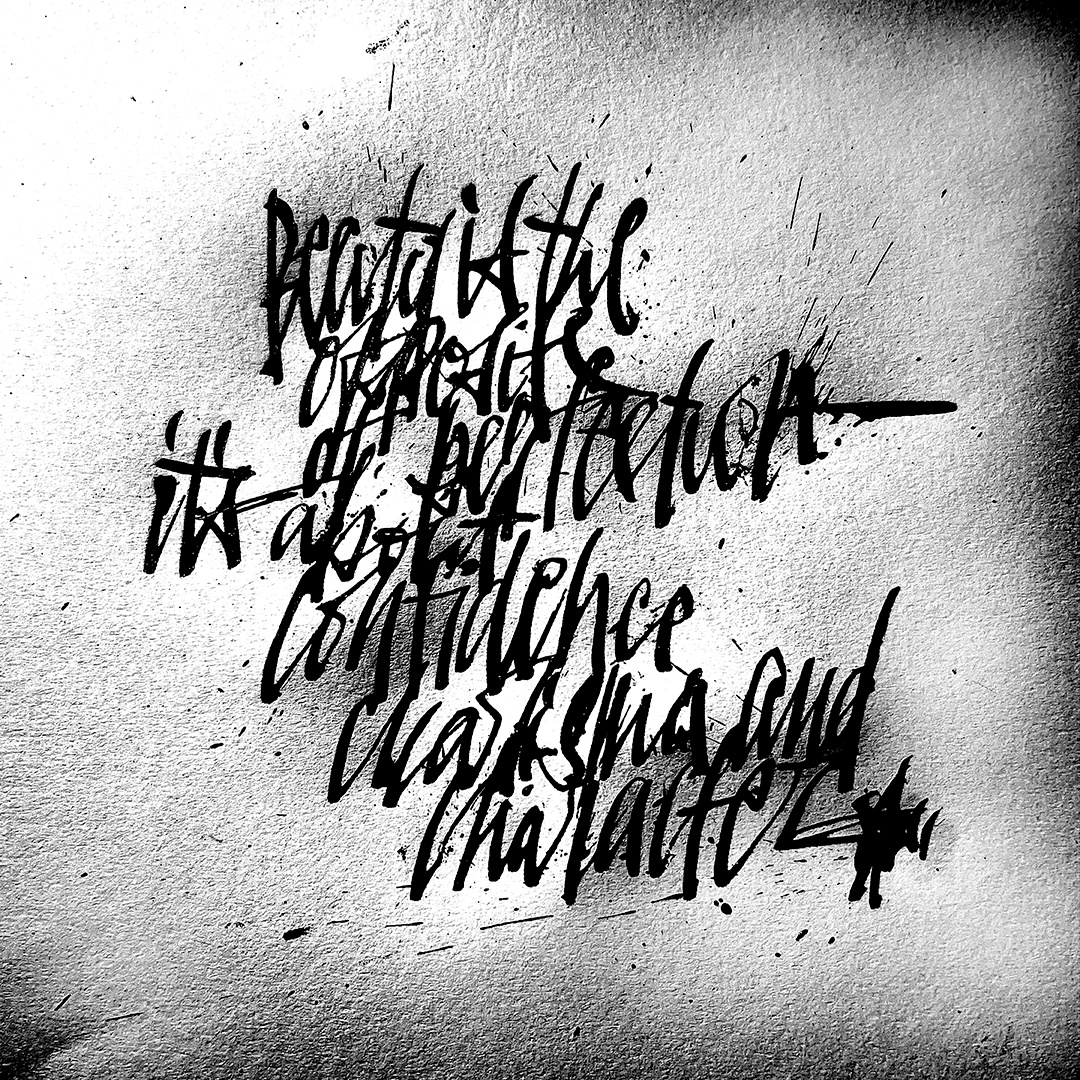 Beauty is the
opposite
of perfection
it's about
confidence
charisma and
character